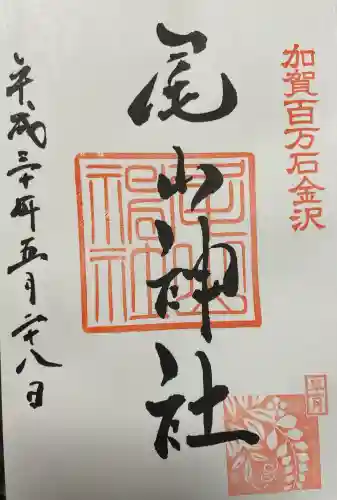 加賀百万石金沢
尾山神社
平成三十年五月二十八日
皐月
尾山神社